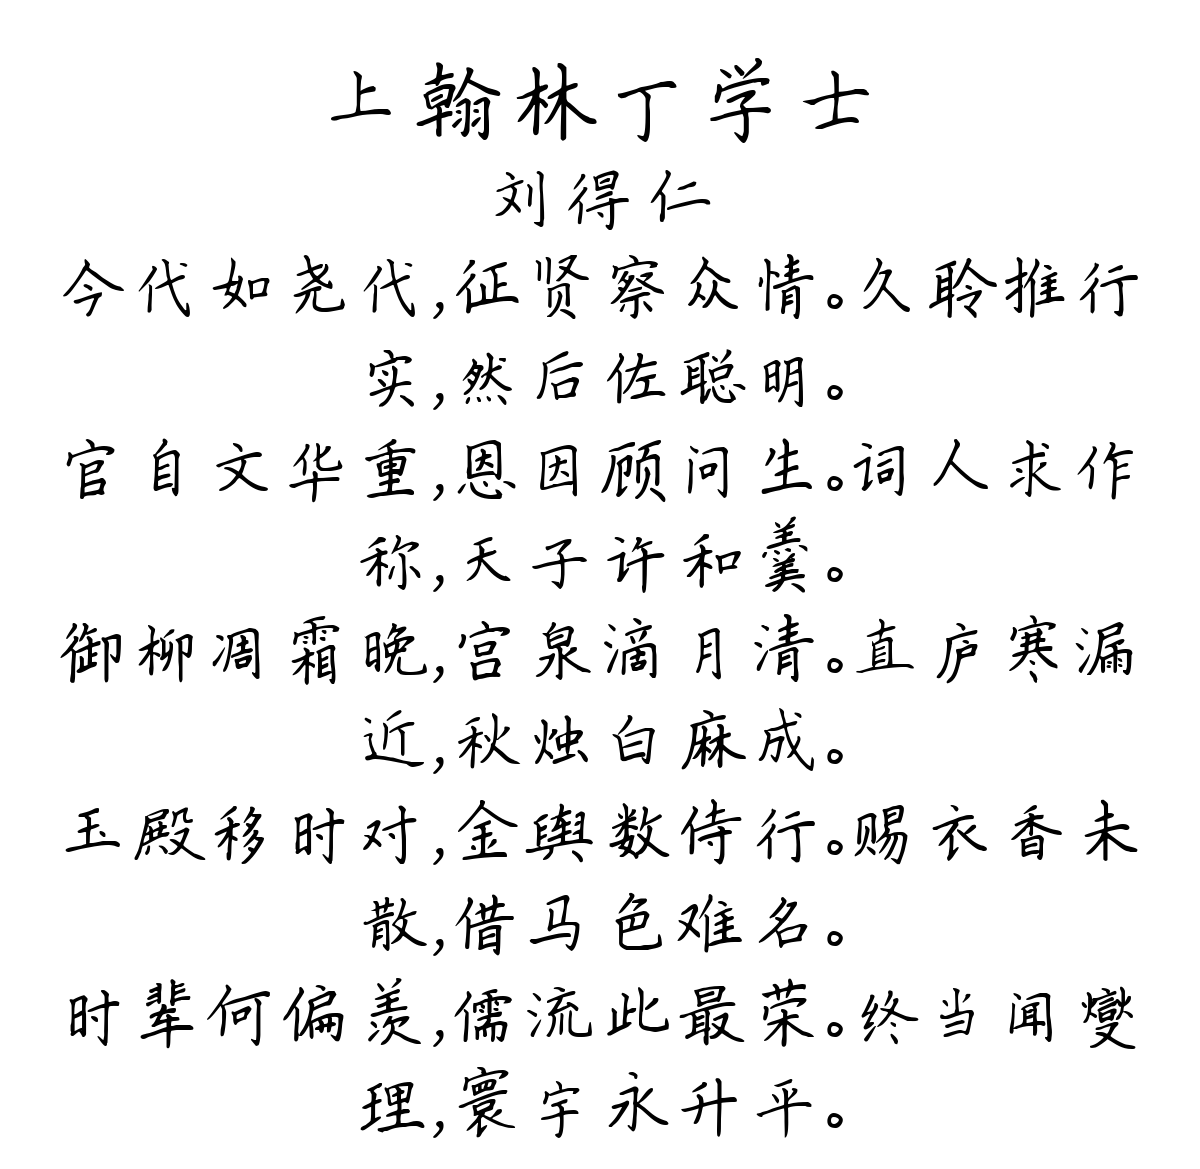 上翰林丁学士
刘得仁
今代如尧代,征贤察众情。久聆推行
实,然后佐聪明。
官自文华重,恩因顾问生。词人求作
称,天子许和羹。
御柳凋霜晚,宫泉滴月清。直庐寒漏
近,秋烛白麻成。
玉殿移时对,金舆数侍行。赐衣香未
散,借马色难名。
时辈何偏羡,儒流此最荣。终当闻燮
理,寰宇永升平。